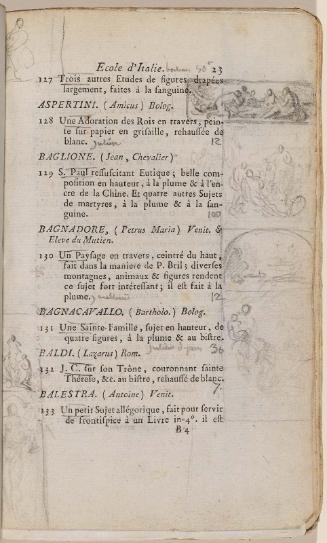 Ecole d'Italie. 23
127 Trois autres Etudes de figures drapées
largement, faites à la sanguine.
ASPERTINI. (Amicus) Bolog.
128 Une Adoration des Rois en travers, pein-
te sur papier en grisaille, rehaussée de
blanc. 12
BAGLIONE. (Jean, Chevalier)
129 S. Paul ressuscitant Eutique; belle com-
position en hauteur, à la plume & à l'en-
cre de la Chine. Et quatre autres Sujets
de martyres, à la plume & à la san-
guine. 100
BAGNADORE, (Petrus Maria) Venit. &
Eleve du Mutien.
130 Un Paysage en travers, ceintré du haut,
fait dans la maniere de P. Bril; diverses
montagnes, animaux & figures rendent
ce sujet fort intéressant; il est fait à la
plume. 12
BAGNACAVALLO. (Bartholo.) Bolog.
131 Une Sainte-Famille, sujet en hauteur, de
quatre figures, à la plume & au bistre.
BALDI. (Lazarus) Rom. 36
132 J. C. sur son Trône, couronnant sainte
Thérese, &c. au bistre, rehaussé de blanc.
BALESTRA. (Antoine) Venit.
133 Un petit Sujet allégorique, fait pour servir
de frontispice à un Livre in-4°. il est
B 4